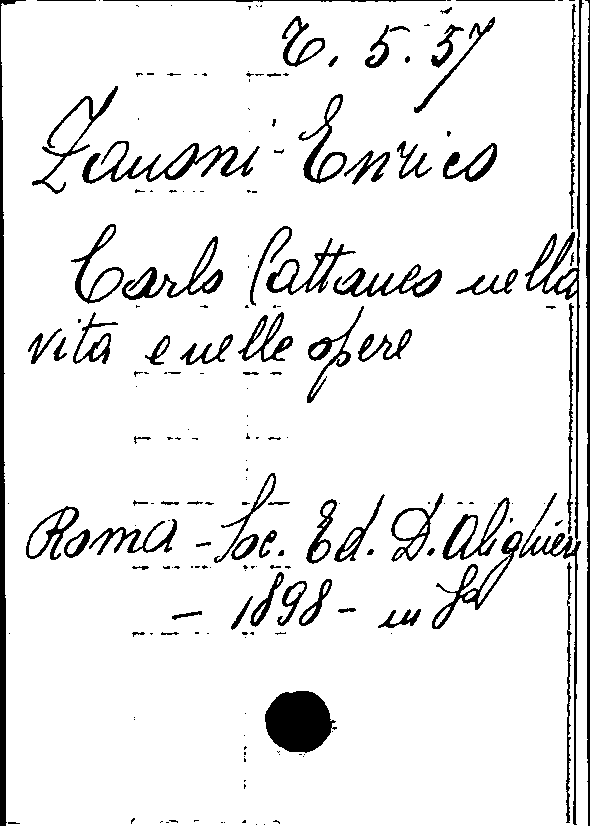 C. 5. 57
Zanoni - Enrico
Carlo Cattaneo nella
vita e nelle opere
Roma - Soc. Ed. D. Alighieri
- 1898 - in 8º